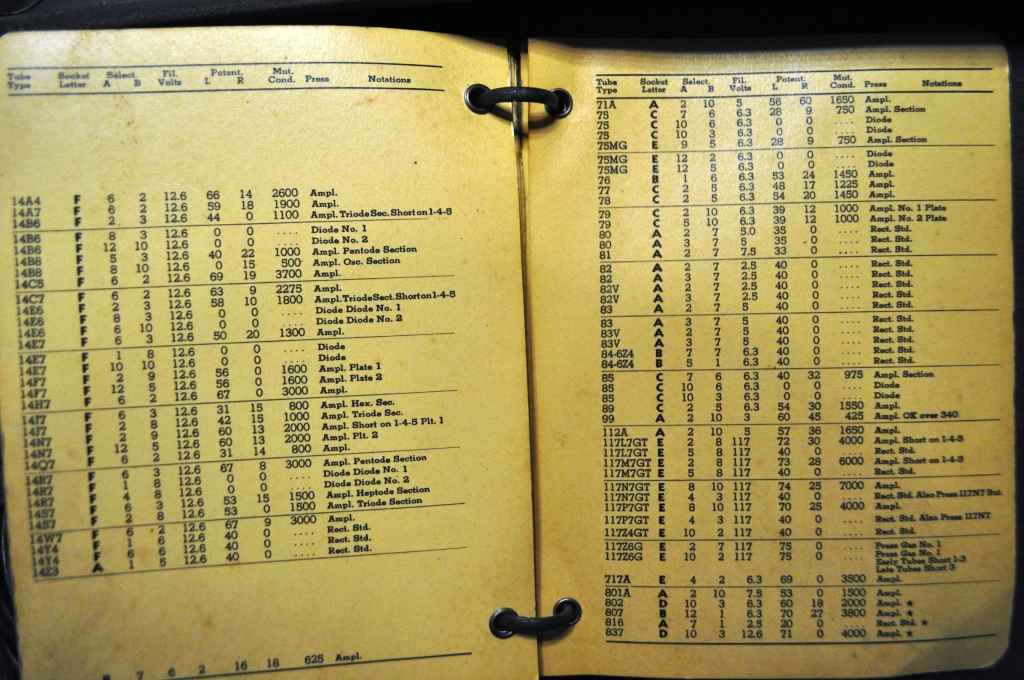 Tube Type Socket Letter Select. A B Fil. Volts Potent. L R Mut. Cond. Press Notations
14A4 F 6 2 12.6 66 14 2600 Ampl.
14A7 F 6 2 12.6 59 18 1900 Ampl.
14B6 F 2 3 12.6 44 0 1100 Ampl. Triode Sec. Short on 1-4-5
14B6 F 8 3 12.6 0 0 .... Diode No. 1
14B6 F 12 10 12.6 0 0 .... Diode No. 2
14B8 F 5 3 12.6 40 22 1000 Ampl. Pentode Section
14B8 F 8 10 12.6 0 15 500 Ampl. Osc. Section
14C5 F 6 2 12.6 69 19 3700 Ampl.
14C7 F 6 2 12.6 63 9 2275 Ampl.
14E6 F 2 3 12.6 58 10 1800 Ampl. Triode Sect. Short on 1-4-5
14E6 F 8 3 12.6 0 0 .... Diode Diode No. 1
14E6 F 6 10 12.6 0 0 .... Diode Diode No. 2
14E7 F 6 3 12.6 50 20 1300 Ampl.
14E7 F 1 8 12.6 0 0 .... Diode
14E7 F 10 10 12.6 0 0 .... Diode
14F7 F 2 9 12.6 56 0 1600 Ampl. Plate 1
14F7 F 12 5 12.6 56 0 1600 Ampl. Plate 2
14H7 F 6 2 12.6 67 0 3000 Ampl.
14J7 F 6 3 12.6 31 15 800 Ampl. Hex. Sec.
14J7 F 2 8 12.6 42 15 1000 Ampl. Triode Sec.
14N7 F 2 9 12.6 60 13 2000 Ampl. Short on 1-4-5 Plt. 1
14N7 F 12 5 12.6 60 13 2000 Ampl. Plt. 2
14Q7 F 6 2 12.6 31 14 800 Ampl.
14R7 F 6 3 12.6 67 8 3000 Ampl. Pentode Section
14R7 F 1 8 12.6 0 0 .... Diode Diode No. 1
14R7 F 4 8 12.6 0 0 .... Diode Diode No. 2
14S7 F 6 3 12.6 53 15 1500 Ampl. Heptode Section
14S7 F 2 8 12.6 53 0 1500 Ampl. Triode Section
14W7 F 6 2 12.6 67 9 3000 Ampl.
14Y4 F 1 6 12.6 40 0 .... Rect. Std.
14Y4 F 6 6 12.6 40 0 .... Rect. Std.
14Z3 A 1 5 12.6 40 0 .... Rect. Std.
7 6 2 16 18 625 Ampl.
Tube Type Socket Letter Select. A B Fil. Volts Potent. L R Mut. Cond. Press Notations
71A A 2 10 5 56 60 1650 Ampl.
75 C 7 6 6.3 28 9 750 Ampl. Section
75 C 10 6 6.3 0 0 .... Diode
75 C 10 3 6.3 0 0 .... Diode
75MG E 9 5 6.3 28 9 750 Ampl. Section
75MG E 12 2 6.3 0 0 .... Diode
75MG E 12 5 6.3 0 0 .... Diode
76 B 1 6 6.3 53 24 1450 Ampl.
77 C 2 5 6.3 48 17 1225 Ampl.
78 C 2 5 6.3 54 20 1450 Ampl.
79 C 2 10 6.3 39 12 1000 Ampl. No. 1 Plate
79 C 5 10 6.3 39 12 1000 Ampl. No. 2 Plate
80 A 2 7 5.0 35 0 .... Rect. Std.
80 A 3 7 5 35 0 .... Rect. Std.
81 A 2 7 7.5 33 0 .... Rect. Std.
82 A 2 7 2.5 40 0 .... Rect. Std.
82 A 3 7 2.5 40 0 .... Rect. Std.
82V A 2 7 2.5 40 0 .... Rect. Std.
82V A 3 7 2.5 40 0 .... Rect. Std.
83 A 2 7 5 40 0 .... Rect. Std.
83 A 3 7 5 40 0 .... Rect. Std.
83V A 2 7 5 40 0 .... Rect. Std.
83V A 3 7 5 40 0 .... Rect. Std.
84-6Z4 B 7 7 6.3 40 0 .... Rect. Std.
84-6Z4 B 5 1 6.3 40 0 .... Rect. Std.
85 C 7 6 6.3 40 32 975 Ampl. Section
85 C 10 6 6.3 0 0 .... Diode
85 C 10 3 6.3 0 0 .... Diode
89 C 2 5 6.3 54 30 1550 Ampl.
99 A 2 10 3 60 45 425 Ampl. OK over 340
112A A 2 10 5 57 36 1650 Ampl.
117L7GT E 2 8 117 72 30 4000 Ampl. Short on 1-4-5
117L7GT E 5 8 117 40 0 .... Rect. Std.
117M7GT E 2 8 117 73 28 6000 Ampl. Short on 1-4-5
117M7GT E 5 8 117 40 0 .... Rect. Std.
117N7GT E 8 10 117 74 25 7000 Ampl.
117N7GT E 4 3 117 40 0 .... Rect. Std. Also Press 117NT Std.
117P7GT E 8 10 117 70 25 4000 Ampl.
117P7GT E 4 3 117 40 0 .... Rect. Std. Also Press 117NT
117Z4GT E 10 2 117 40 0 .... Rect. Std.
117Z6G E 2 7 117 75 0 .... Press Gas No. 1
117Z6G E 10 2 117 75 0 .... Press Gas No. 1
Early Tubes Short 1-3
Late Tubes Short 3
717A E 4 2 6.3 69 0 3500 Ampl.
801A A 2 10 7.5 53 0 1500 Ampl.
802 D 10 3 6.3 60 18 2000 Ampl. ★
807 B 12 1 6.3 70 27 3800 Ampl. ★
816 A 7 1 2.5 20 0 .... Rect. Std. ★
837 D 10 3 12.6 71 0 4000 Ampl. ★